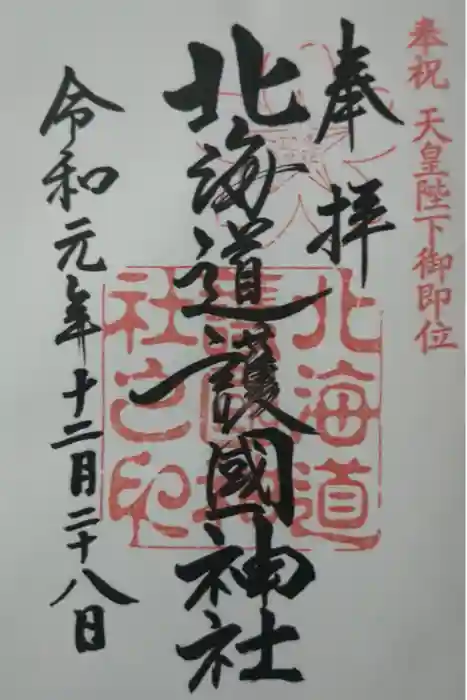 奉祝 天皇陛下御即位
奉拝
北海道護國神社
令和元年十二月二十八日
北海道
護國神
社之印